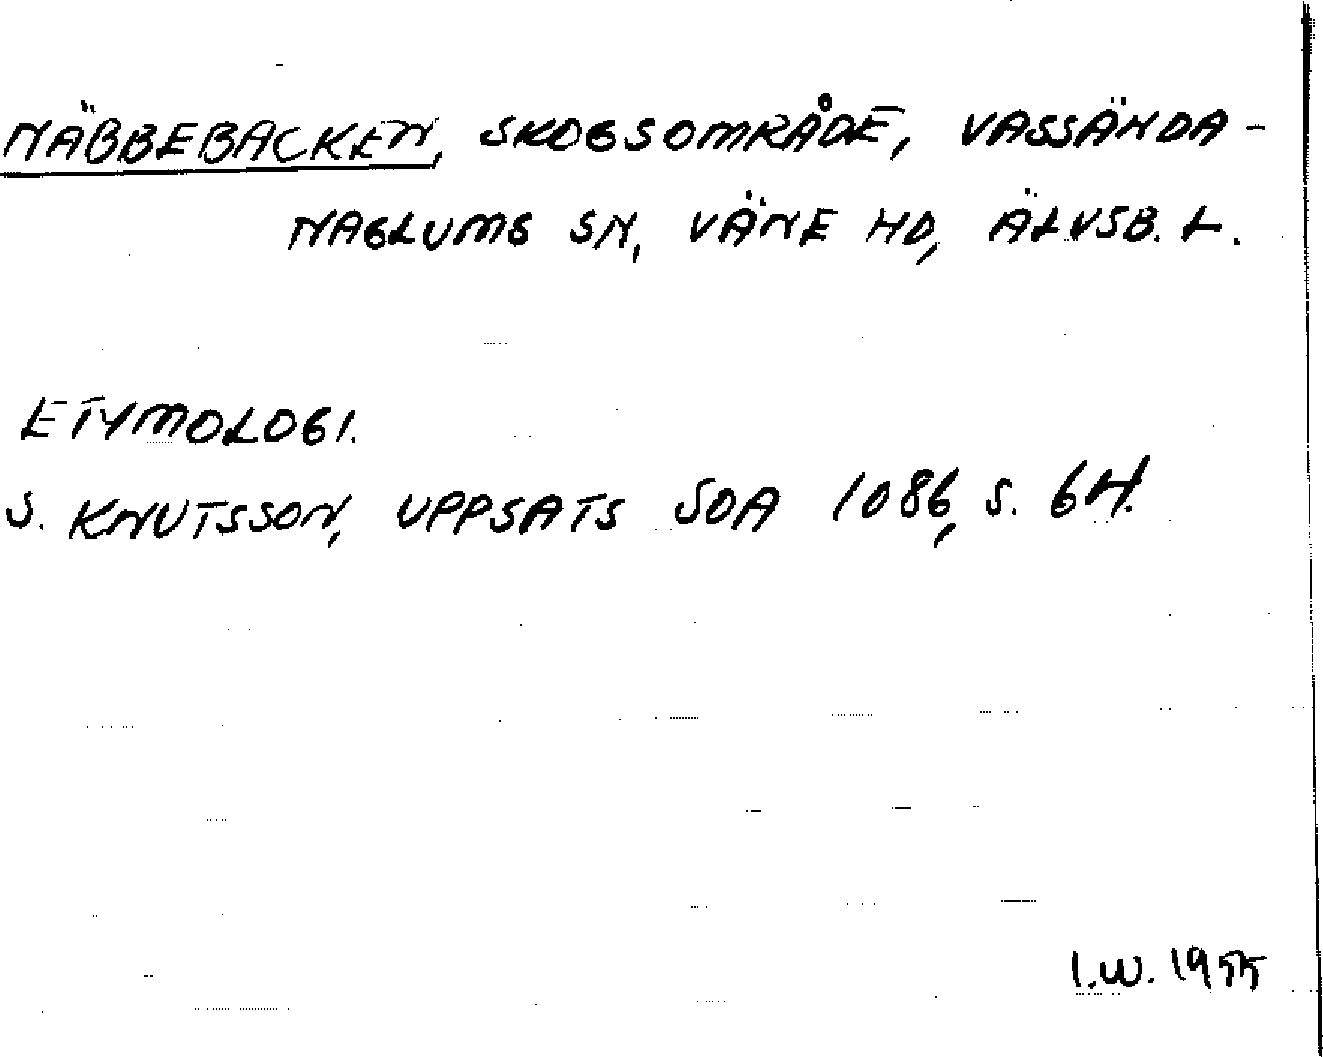 NÄBBEBACKEN, SKOGSOMRÅDE, VASSÄNDA-
NAGLUMS SN, VÄNE HD, ÄLVSB. L.
ETYMOLOGI.
S. KNUTSSON, UPPSATS SOA 1086, S. 64.
I.W. 1955